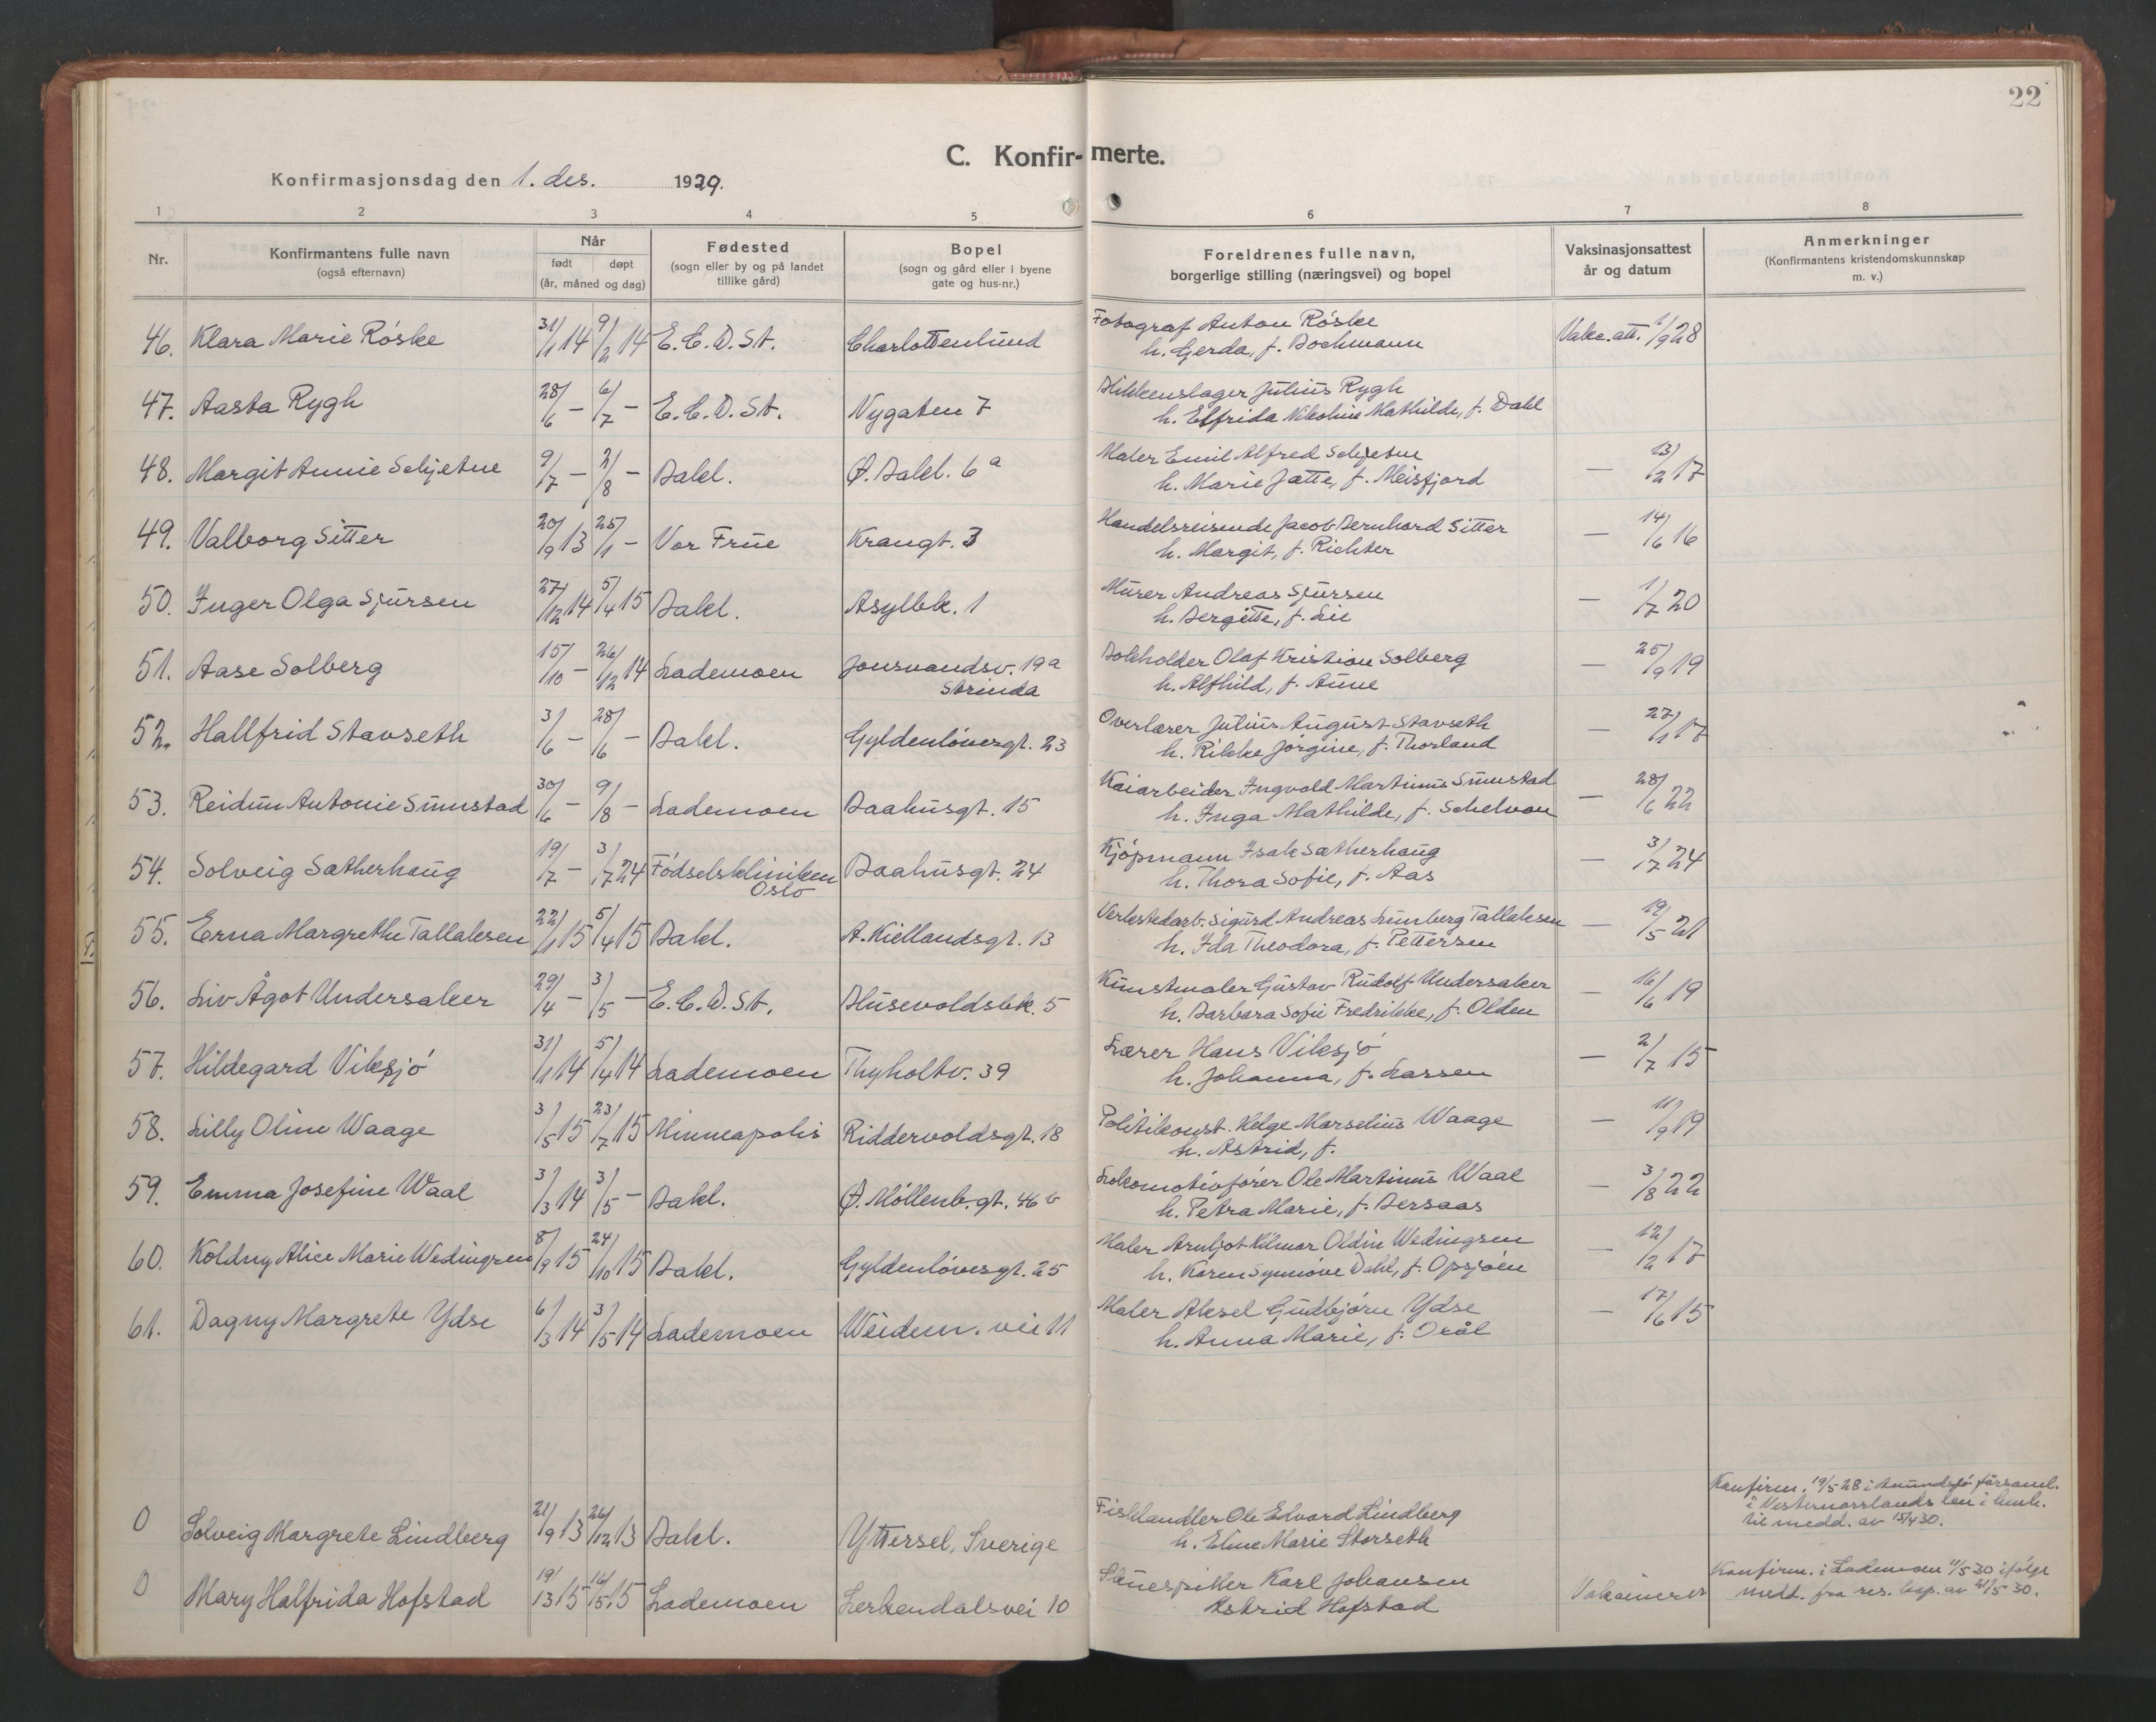 22
C. Konfir-merte.
Konfirmasjonsdag den 1. des. 1929.
1 2 3 4 5 6 7 8
Nr. Konfirmantens fulle navn (også efternavn) Når født døpt (år, måned og dag) Fødested (sogn eller by og på landet tillike gård) Bopel (sogn og gård eller i byene gate og hus-nr.) Foreldrenes fulle navn, borgerlige stilling (næringsvei) og bopel Vaksinasjonsattest år og datum Anmerkninger (Konfirmantens kristendomskunnskap m. v.)
46. Klara Marie Röske 31/1 14 9/2 14 E.C.D.St. Charlottenlund Fotograf Anton Röske Vakc.att. 1/9 28
h. Gerda, f. Bochmann
47. Aasta Rygh 28/6 – 6/7 – E.C.D.St. Nygaten 7 Blikkenslager Julius Rygh
h. Elfrida Nikoline Mathilde, f. Dahl
48. Margit Annie Schjetne 9/7 – 2/8 – Bakl. Ø. Bakl. 6a Maler Emil Alfred Schjetne – 13/2 17
h. Marie Jætte, f. Meisfjord
49. Valborg Sitter 20/9 13 25/1 – Vor Frue Krangt. 3 Handelsreisende Jacob Bernhard Sitter – 14/6 16
h. Margit, f. Richter
50. Inger Olga Sjursen 27/12 14 5/4 15 Bakl. Asylbk. 1 Murer Andreas Sjursen – 1/7 20
h. Bergitte, f. Lie
51. Aase Solberg 15/10 – 26/12 14 Lademoen Jonsvandsv. 19a Bokholder Olaf Kristian Solberg – 25/9 19
Strinda h. Alfhild, f. Aune
52. Hallfrid Stavseth 3/6 – 28/6 – Bakl. Gyldenløvesgt. 23 Overlærer Julius August Stavseth – 27/1 17
h. Rikke Jørgine, f. Thorland
53. Reidun Antonie Sunnstad 30/6 – 9/8 – Lademoen Baahusgt. 15 Kaiarbeider Ingvald Martinus Sunnstad – 28/6 22
h. Inga Mathilde, f. Schelvan
54. Solveig Sætherhaug 19/7 – 3/7 24 Fødselsklinikken Baahusgt. 24 Kjøpmann Isak Sætherhaug – 3/7 24
Oslo h. Thora Sofie, f. Aas
55. Erna Margrethe Tallaksen 22/1 15 5/4 15 Bakl. A. Kiellandsgt. 13 Verkstedarb. Sigurd Andreas Lunberg Tallaksen – 19/5 21
h. Ida Theodora, f. Pettersen
56. Liv Ågot Undersaker 29/4 – 3/5 – E.C.D.St. Busevoldsbk. 5 Kunstmaler Gustav Rudolf Undersaker – 16/6 19
h. Barbara Sofie Fredrikke, f. Olden
57. Hildegard Viksjö 31/1 14 5/4 14 Lademoen Thyholtv. 39 Lærer Hans Viksjö – 2/7 15
h. Johanna, f. Larsen
58. Lilly Oline Waage 3/5 15 23/7 15 Minneapolis Riddervoldsgt. 18 Politikonst. Helge Marselius Waage – 11/9 19
h. Astrid, f.
59. Emma Josefine Waal 3/3 14 3/5 – Bakl. Ø. Möllenb.gt. 46b Lokomotivfører Ole Martinus Waal – 3/8 22
h. Petra Marie, f. Bersaas
60. Koldny Alice Marie Wedingsen 8/9 15 24/10 15 Bakl. Gyldenløvesgt. 25 Maler Arnljot Hilmar Oldin Wedingsen – 12/2 17
h. Karen Synnöve Dahl, f. Opsjøen
61. Dagny Margrete Ydse 6/3 14 3/5 14 Lademoen Weidem. vei 11 Maler Aksel Gudbjørn Ydse – 17/6 15
h. Anna Marie, f. Orål
0 Solveig Margrete Lindberg 21/9 13 26/12 13 Bakl. Yttersel, Sverige Fiskhandler Ole Edvard Lindberg Konfirm. 19/5 28 i Anundsjö församl.
h. Eline Marie Storseth i Vesternorrlands len i henh.
til medd. av 15/4 30.
0 Mary Halfrida Hofstad 19/3 15 16/5 15 Lademoen Lerkendalsvei 10 Karl Johansen Konfirm. i Lademoen 11/5 30 ifølge
Astrid Hofstad medd. fra res. kap. av 21/5 30.